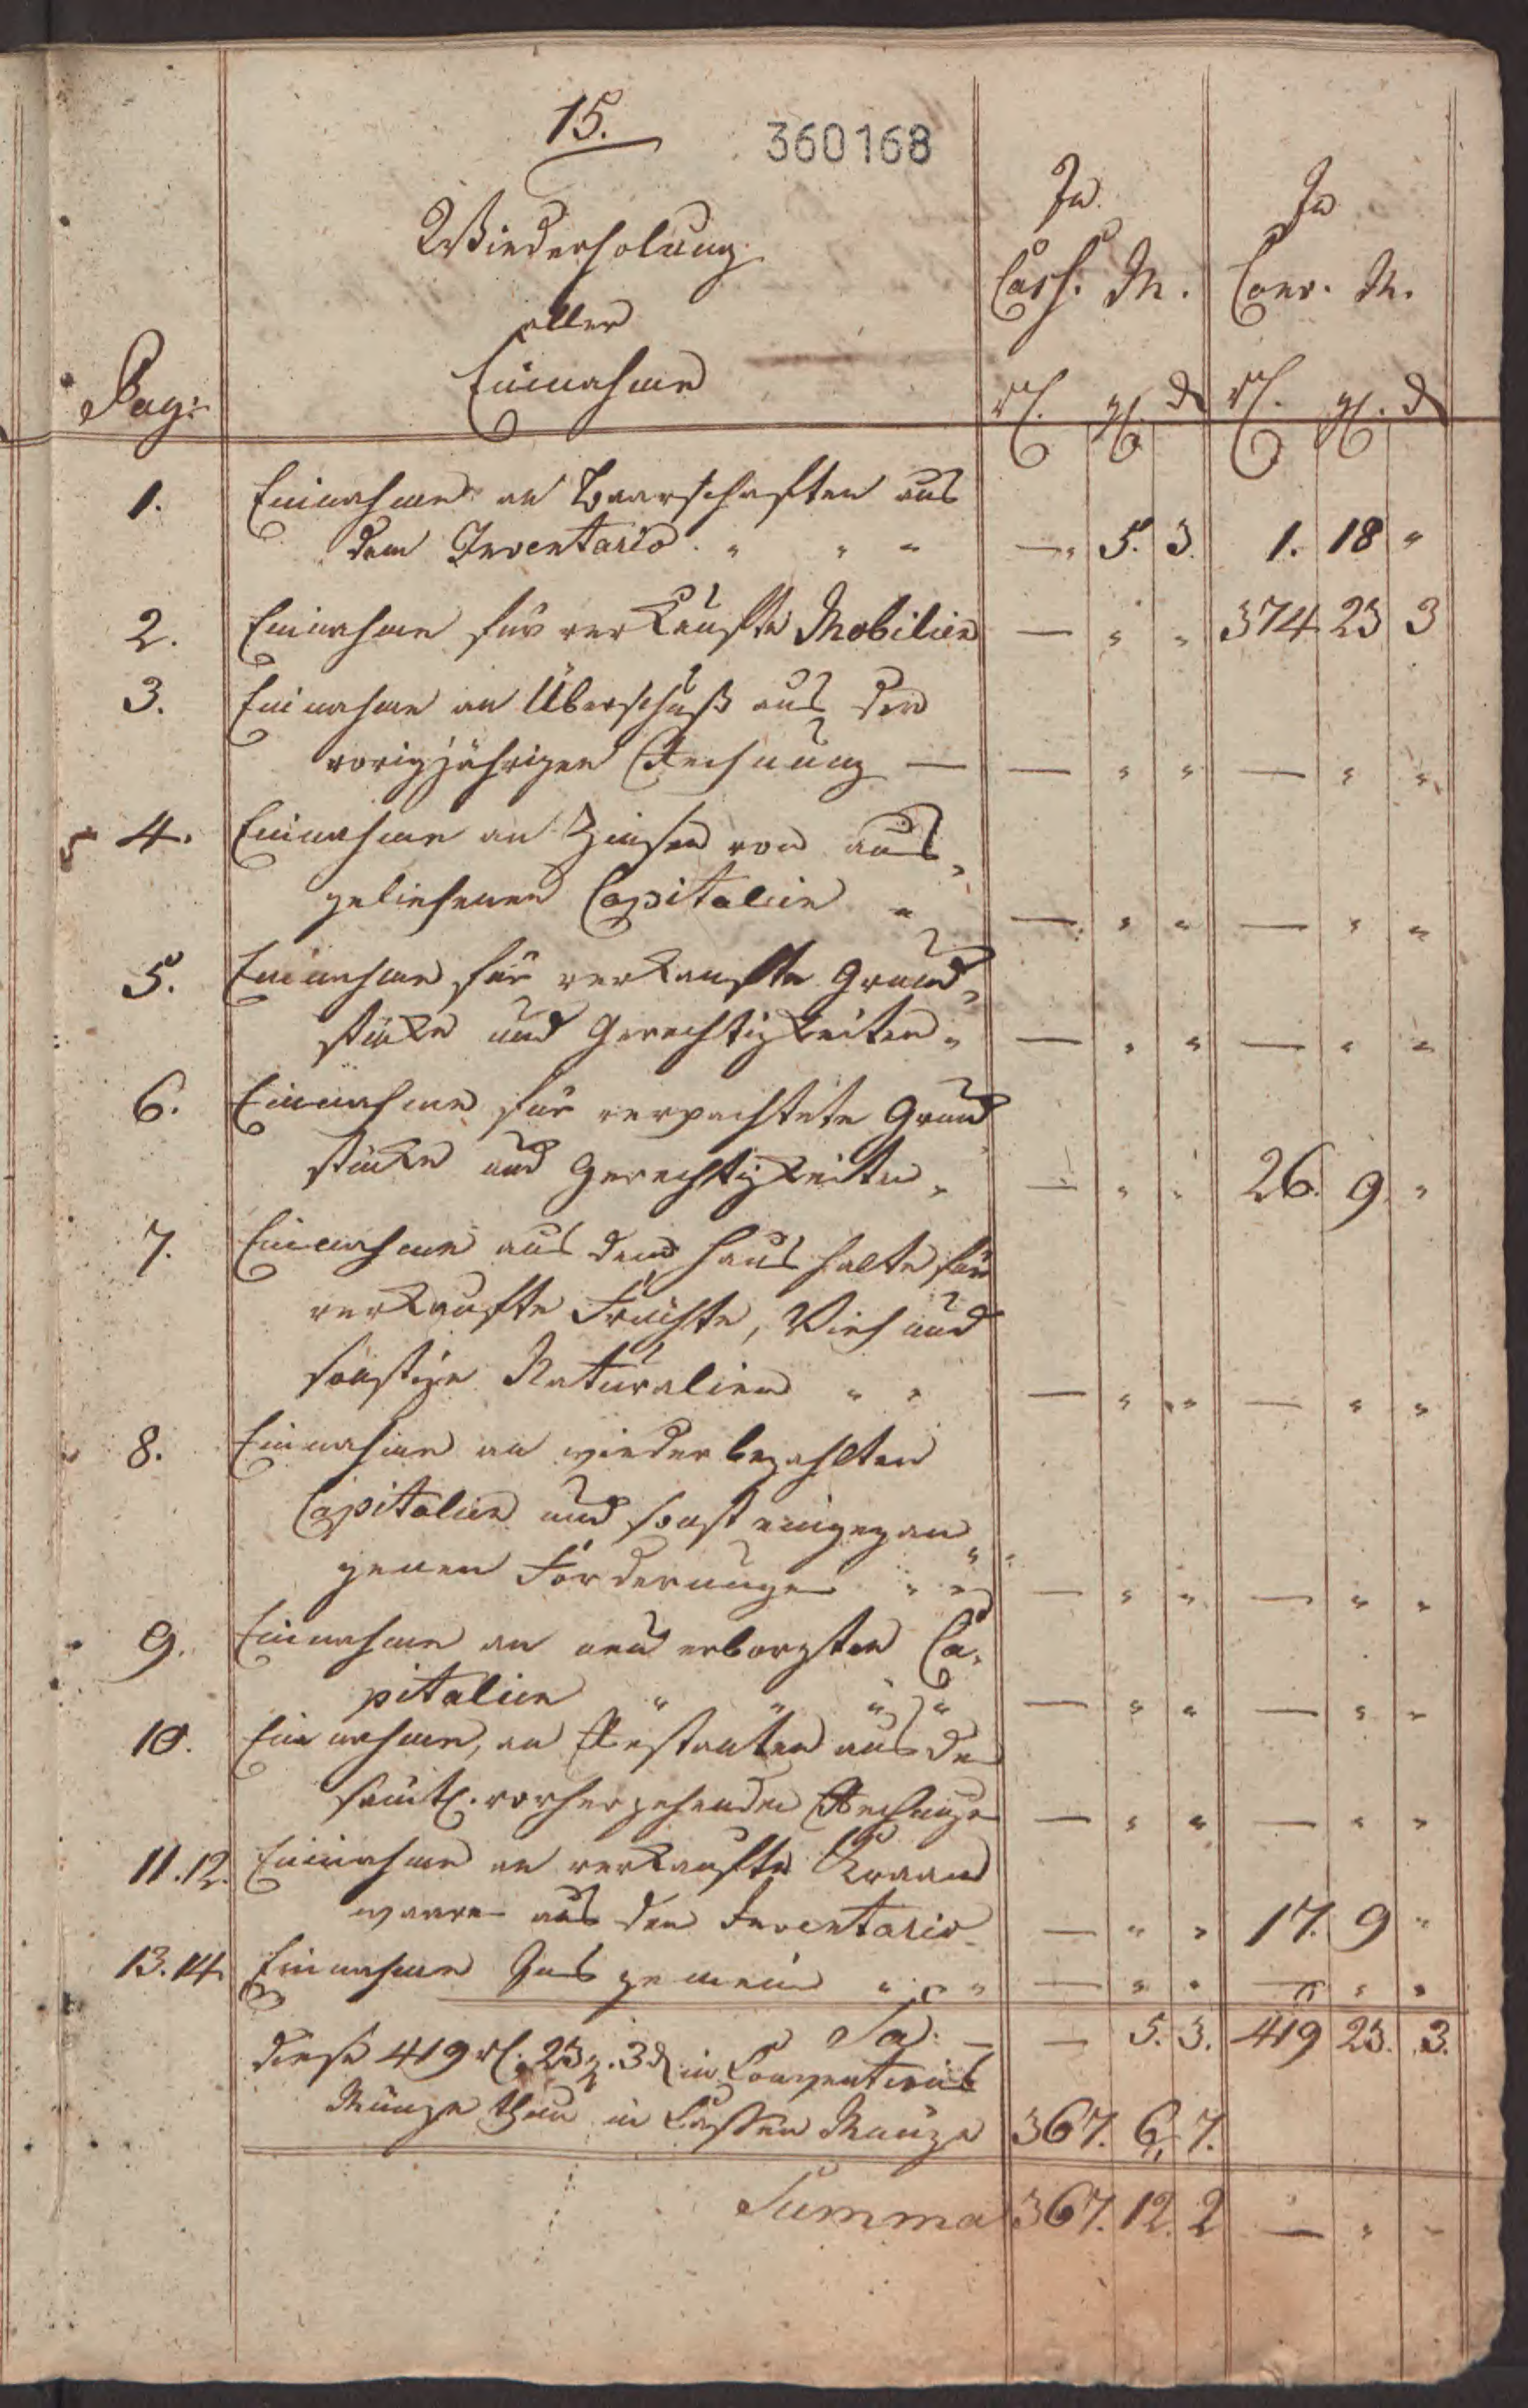 15.
360168
Wiederholung
aller
Einnahme
Pag:
In
Cass. M.
In
Conv. M.
rl. gl. d
rl. gl. d
1. Einnahme an Baarschaften aus
dem Inventario. " " " —" 5. 3. 1. 18 "
2. Einnahme für verkaufte Mobilien — " " 374 23 3
3. Einnahme an Überschuß aus der
vorigjährigen Rechnung — — " " — " "
4. Einnahme an Zinsen von aus„
geliehenen Capitalien " — " " — " "
5. Einnahme für verkaufte Grund„
stücke und Gerechtigkeiten " — " " — " "
6. Einnahme für verpachtete Grund„
stücke und Gerechtigkeiten " — " " 26. 9. "
7. Einnahme aus dem Haushalte für
verkaufte Früchte, Vieh und
sonstige Naturalien " " — " " — " "
8. Einnahme an wiederbezahlten
Capitalien und sonst eingegan„
genen Forderungen " " — " " — " "
9. Einnahme an neu erborgten Ca„
pitalien " " " " — " " — " "
10. Einnahme, an Restanten aus den
sämtl. vorhergehenden Rechnungen — " " — " "
11.12. Einnahme an verkaufte Kraam
waaren aus dem Inventario — " " 17. 9 "
13.14. Einnahme Ins gemein " " " — " " — " "
Sa: — — 5. 3. 419 23. 3.
diese 419 rl. 23 g. 3 d in Conventions
Münze thun in Cassen Münze 367. 6„ 7.
Summa 367. 12. 2 — " "